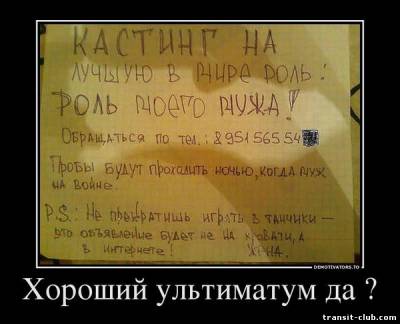 КАСТИНГ НА
ЛУЧШУЮ В МИРЕ РОЛЬ :
РОЛЬ МОЕГО МУЖА!
ОБРАЩАТЬСЯ ПО ТЕЛ.: 8 951 565 54
ПРОБЫ БУДУТ ПРОХОДИТЬ НОЧЬЮ, КОГДА МУЖ
НА ВОЙНЕ.
P.S.: НЕ ПРЕКРАТИШЬ ИГРАТЬ В ТАНЧИКИ —
ЭТО ОБЪЯВЛЕНИЕ БУДЕТ НЕ НА КРОВАТИ, А
В ИНТЕРНЕТЕ! ЖЕНА.
DEMOTIVATORS.TO
Хороший ультиматум да ?
transit-club.com